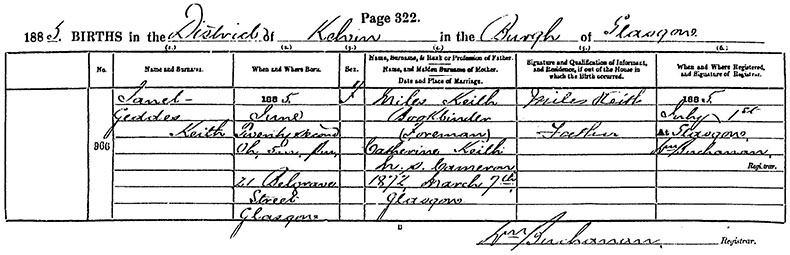 Page 322.
1885. BIRTHS in the District of Kelvin in the Burgh of Glasgow
(1.) (2.) (3.) (4.) (5.) (6.)
No. Name and Surname. When and Where Born. Sex. Name, Surname, & Rank or Profession of Father. Name, and Maiden Surname of Mother. Date and Place of Marriage. Signature and Qualification of Informant, and Residence, if out of the House in which the Birth occurred. When and Where Registered, and Signature of Registrar.
Janet 1885 F Miles Keith Miles Keith 1885.
Geddes June Bookbinder July 1st
Keith Twenty second (Foreman) Father At Glasgow
966 0h. 5m. Catherine Keith Wm Buchanan
m.s. Cameron Registrar.
21 Belgrave 1872, March 7th
Street Glasgow
Glasgow
Wm Buchanan. Registrar.